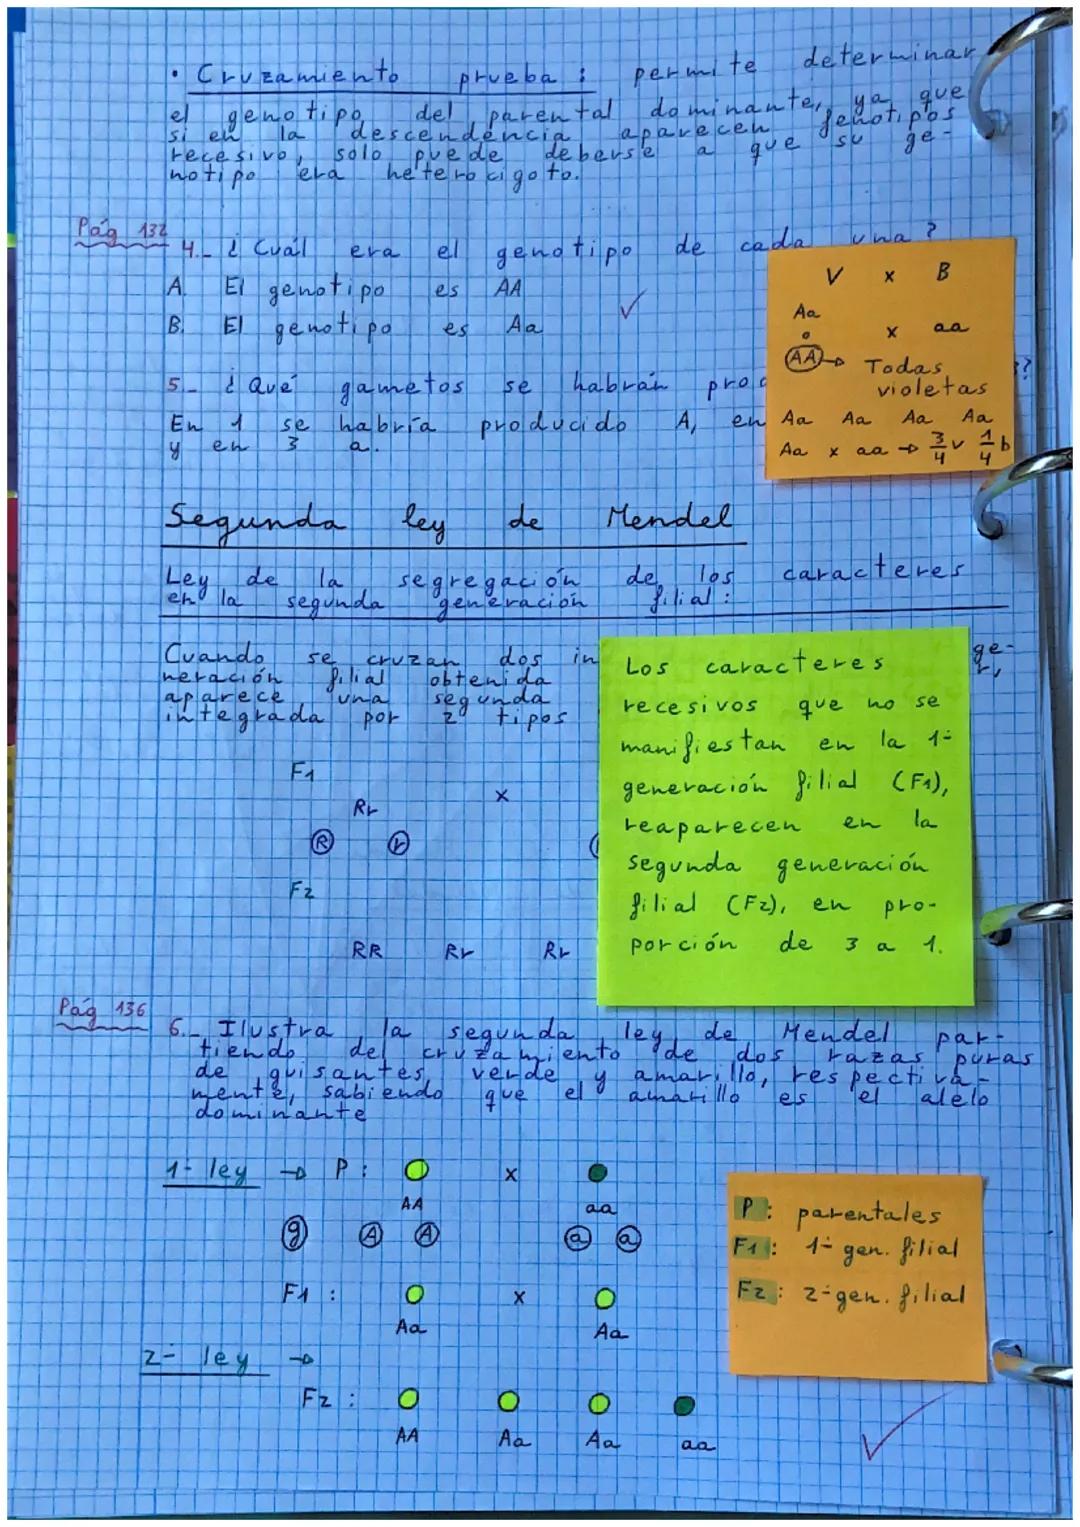 • Cruzamiento prueba : permite determinar
el genotipo del parental dominante, ya que
si en la descendencia aparecen fenotipos
recesivo, solo puede deberse a que su ge-
notipo era heterocigoto.
Pág 132
4.- ¿ Cuál era el genotipo de cada una ?
A. El genotipo es AA
B. El genotipo es Aa
5.- ¿ Qué gametos se habrán
En 1 se habría producido A, en
y en 3 a.
V x B
Aa
o x aa
AA → Todas
violetas
Aa Aa Aa Aa
Aa x aa → 3/4 v 1/4 b
Segunda ley de Mendel
Ley de la segregación de los caracteres
en la segunda generación filial :
Cuando se cruzan dos in ge-
neración filial obtenida r,
aparece una segunda
integrada por 2 tipos
F1
Rr x
R r
F2
RR Rr Rr
Los caracteres
recesivos que no se
manifiestan en la 1ª
generación filial (F1),
reaparecen en la
segunda generación
filial (F2), en pro-
porción de 3 a 1.
Pág 136
6.- Ilustra la segunda ley de Mendel par-
tiendo del cruzamiento de dos razas puras
de guisantes, verde y amarillo, respectiva-
mente, sabiendo que el amarillo es el alelo
dominante
1ª ley → P : x
AA aa
g A A a a
F1 : x
Aa Aa
2ª ley →
F2 :
AA Aa Aa aa
P : parentales
F1 : 1ª gen. filial
F2 : 2ª gen. filial